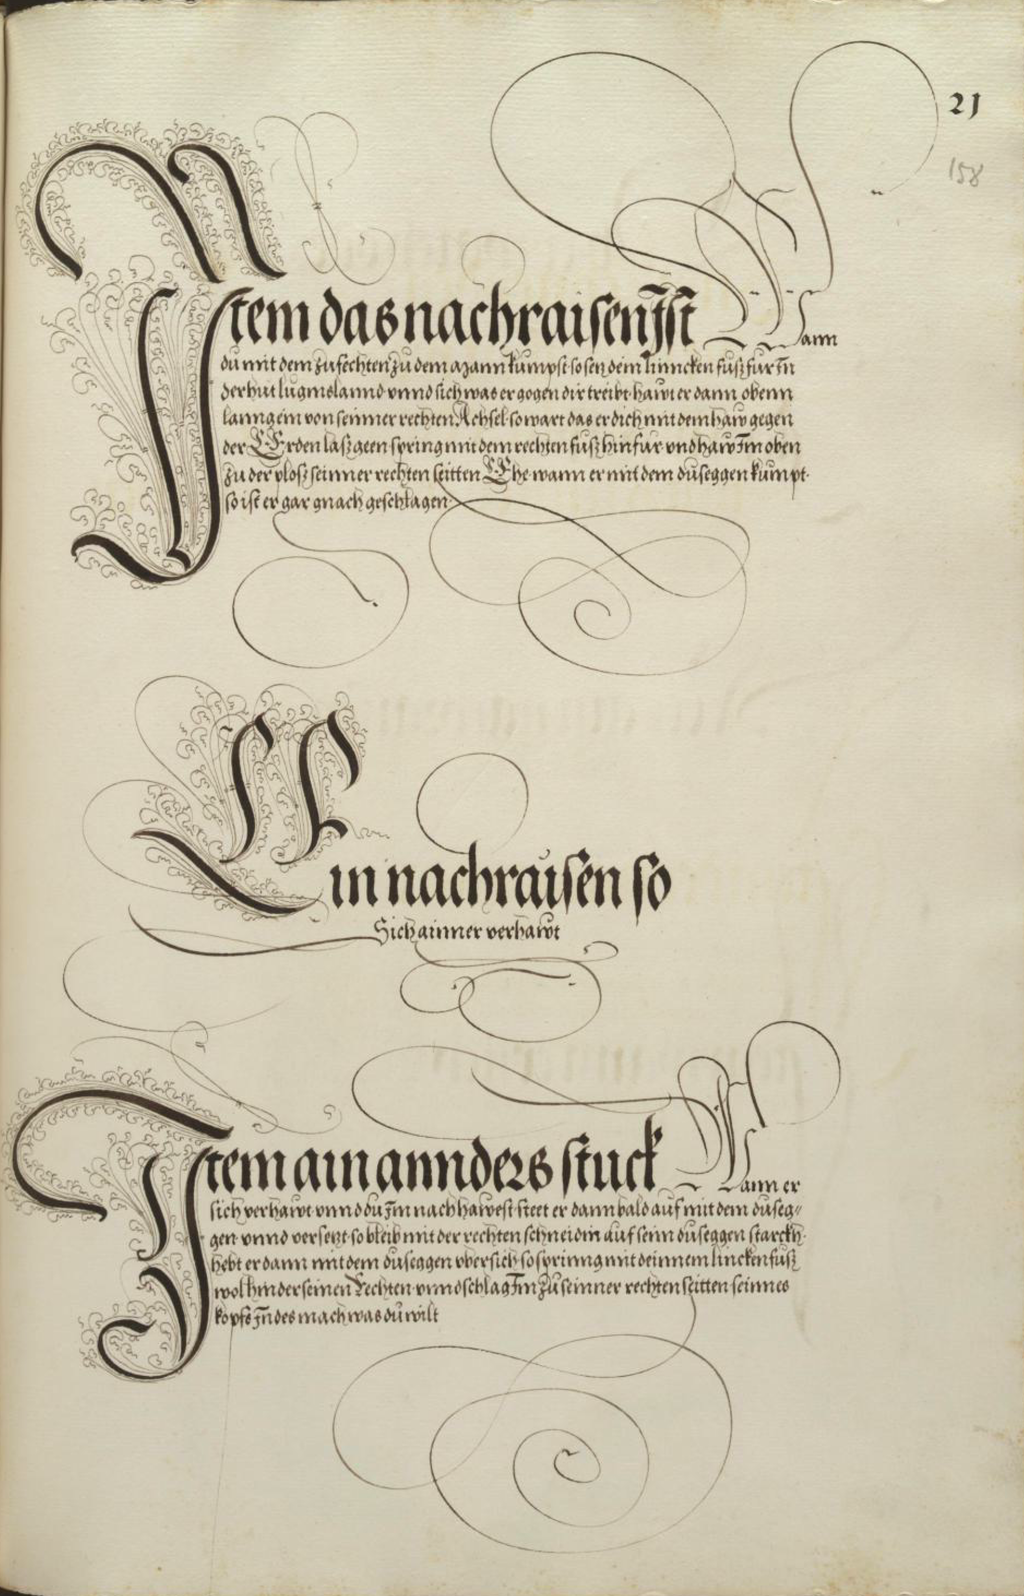 21
158
Item das nachraisen Ist Wann
du mit dem zufechten zu dem Mann kumpst so setz dein linncken fuß fur In
der hut luginslannd vnnd sich was er gegen dir treibt hawt er dann obenn
lanng ein von seinner rechten Achsel so wart das er dich mit dem haw gegen
der Erden laß geen spring mit dem rechten fuß hin fur vnd haw Im oben
zu der ploß seinner rechten seitten Ehe wann er mit dem duseggen kumpt
so ist er gar gnach geschlagen
Ein nachraisen so
Sich ainner verhawt
Item ain annders stuck Wann er
sich verhawt vnnd du Im nach hawest steet er dann bald auf mit dem duseg„
gen vnnd versetzt so bleib mit der rechten schneid in auf seinn duseggen starckh
hebt er dann mit dem duseggen vbersich so sprinng mit deinnem lincken fuß
wol hinder seinen Rechten vnnd schlag Im zu seinner rechten seitten seinnes
kopfs Indes mach was du wilt